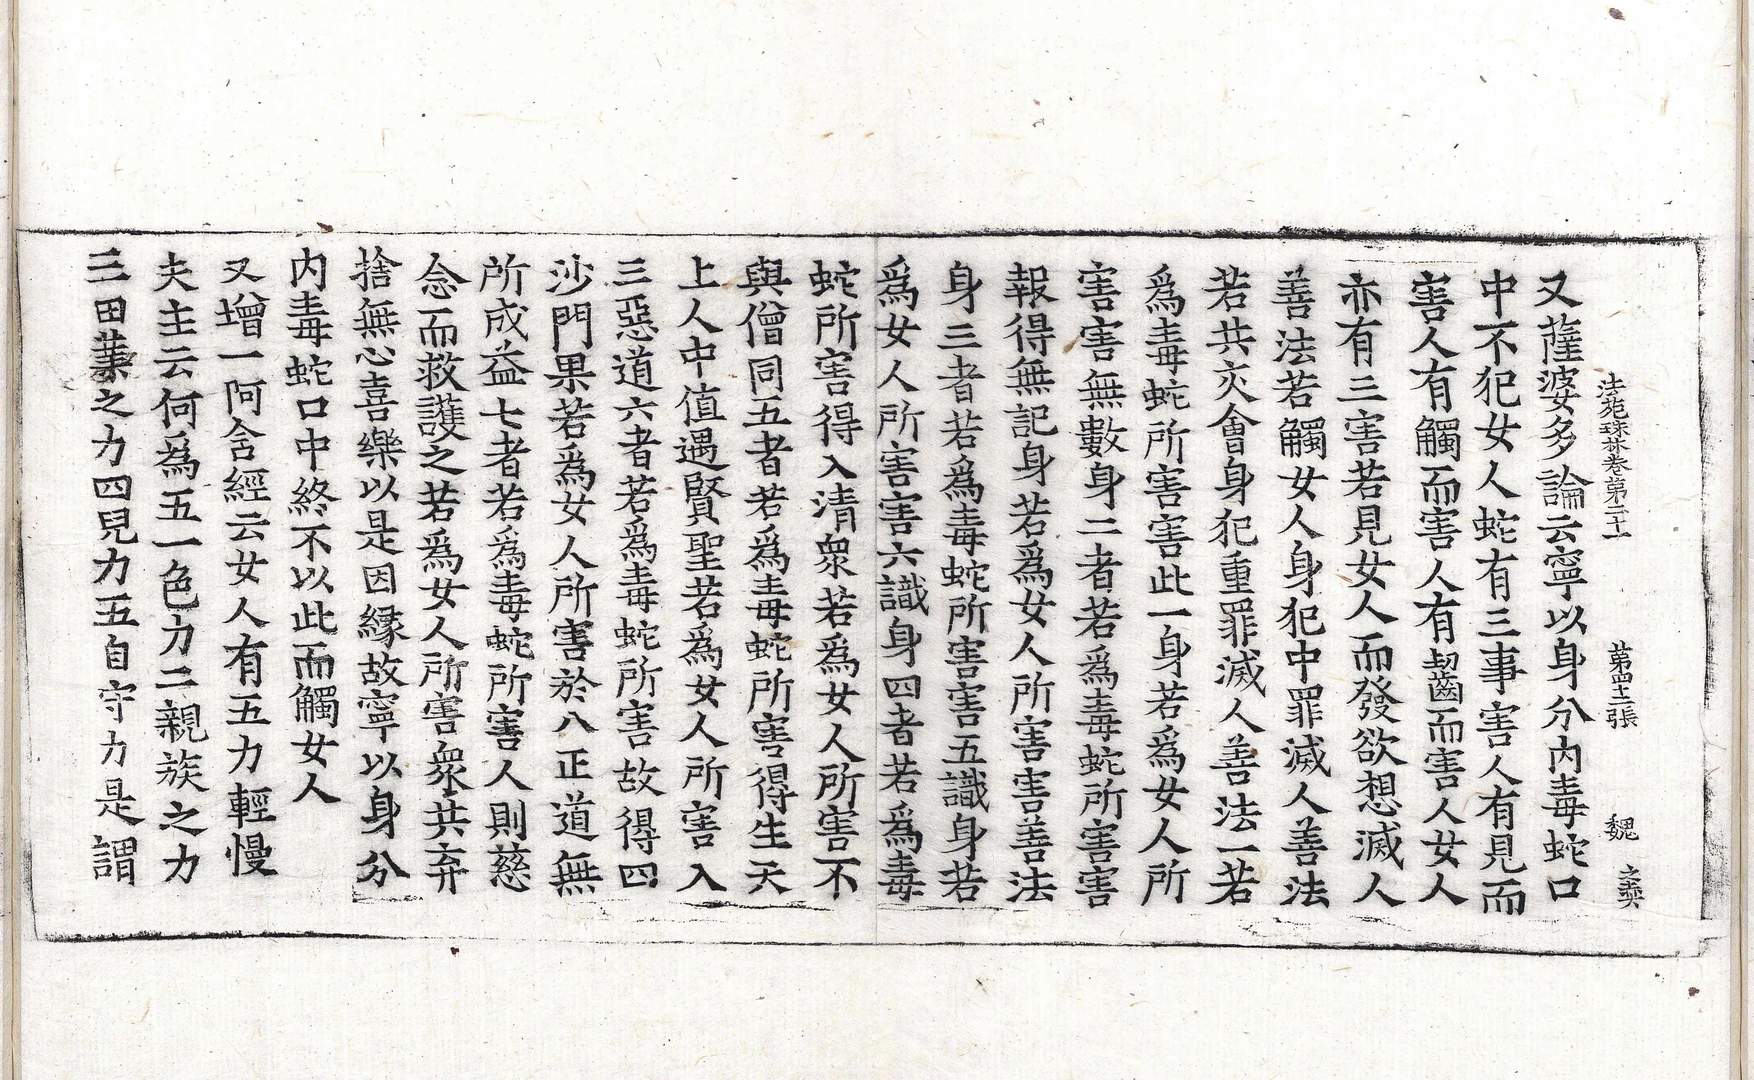 法苑珠林卷第二十一 張 魏
又薩婆多論云寧以身分内毒蛇口
中不犯女人蛇有三事害人有見而
害人有觸而害人有齧而害人女人
亦有三害若見女人而發欲想滅人
善法若觸女人身犯中罪滅人善法
若共交會身犯重罪滅人善法一若
爲毒蛇所害害此一身若爲女人所
害害無數身二者若爲毒蛇所害害
報得無記身若爲女人所害害善法
身三者若爲毒蛇所害害五識身若
爲女人所害害六識身四者若爲毒
蛇所害得入清衆若爲女人所害不
與僧同五者若爲毒蛇所害得生天
上人中值遇賢聖若爲女人所害入
三惡道六者若爲毒蛇所害故得四
沙門果若爲女人所害於八正道無
所成益七者若爲毒蛇所害人則慈
念而救護之若爲女人所害衆共弃
捨無心喜樂以是因縁故寧以身分
内毒蛇口中終不以此而觸女人
又增一阿含經云女人有五力輕慢
夫主云何爲五一色力二親族之力
三田業之力四兒力五自守力是謂